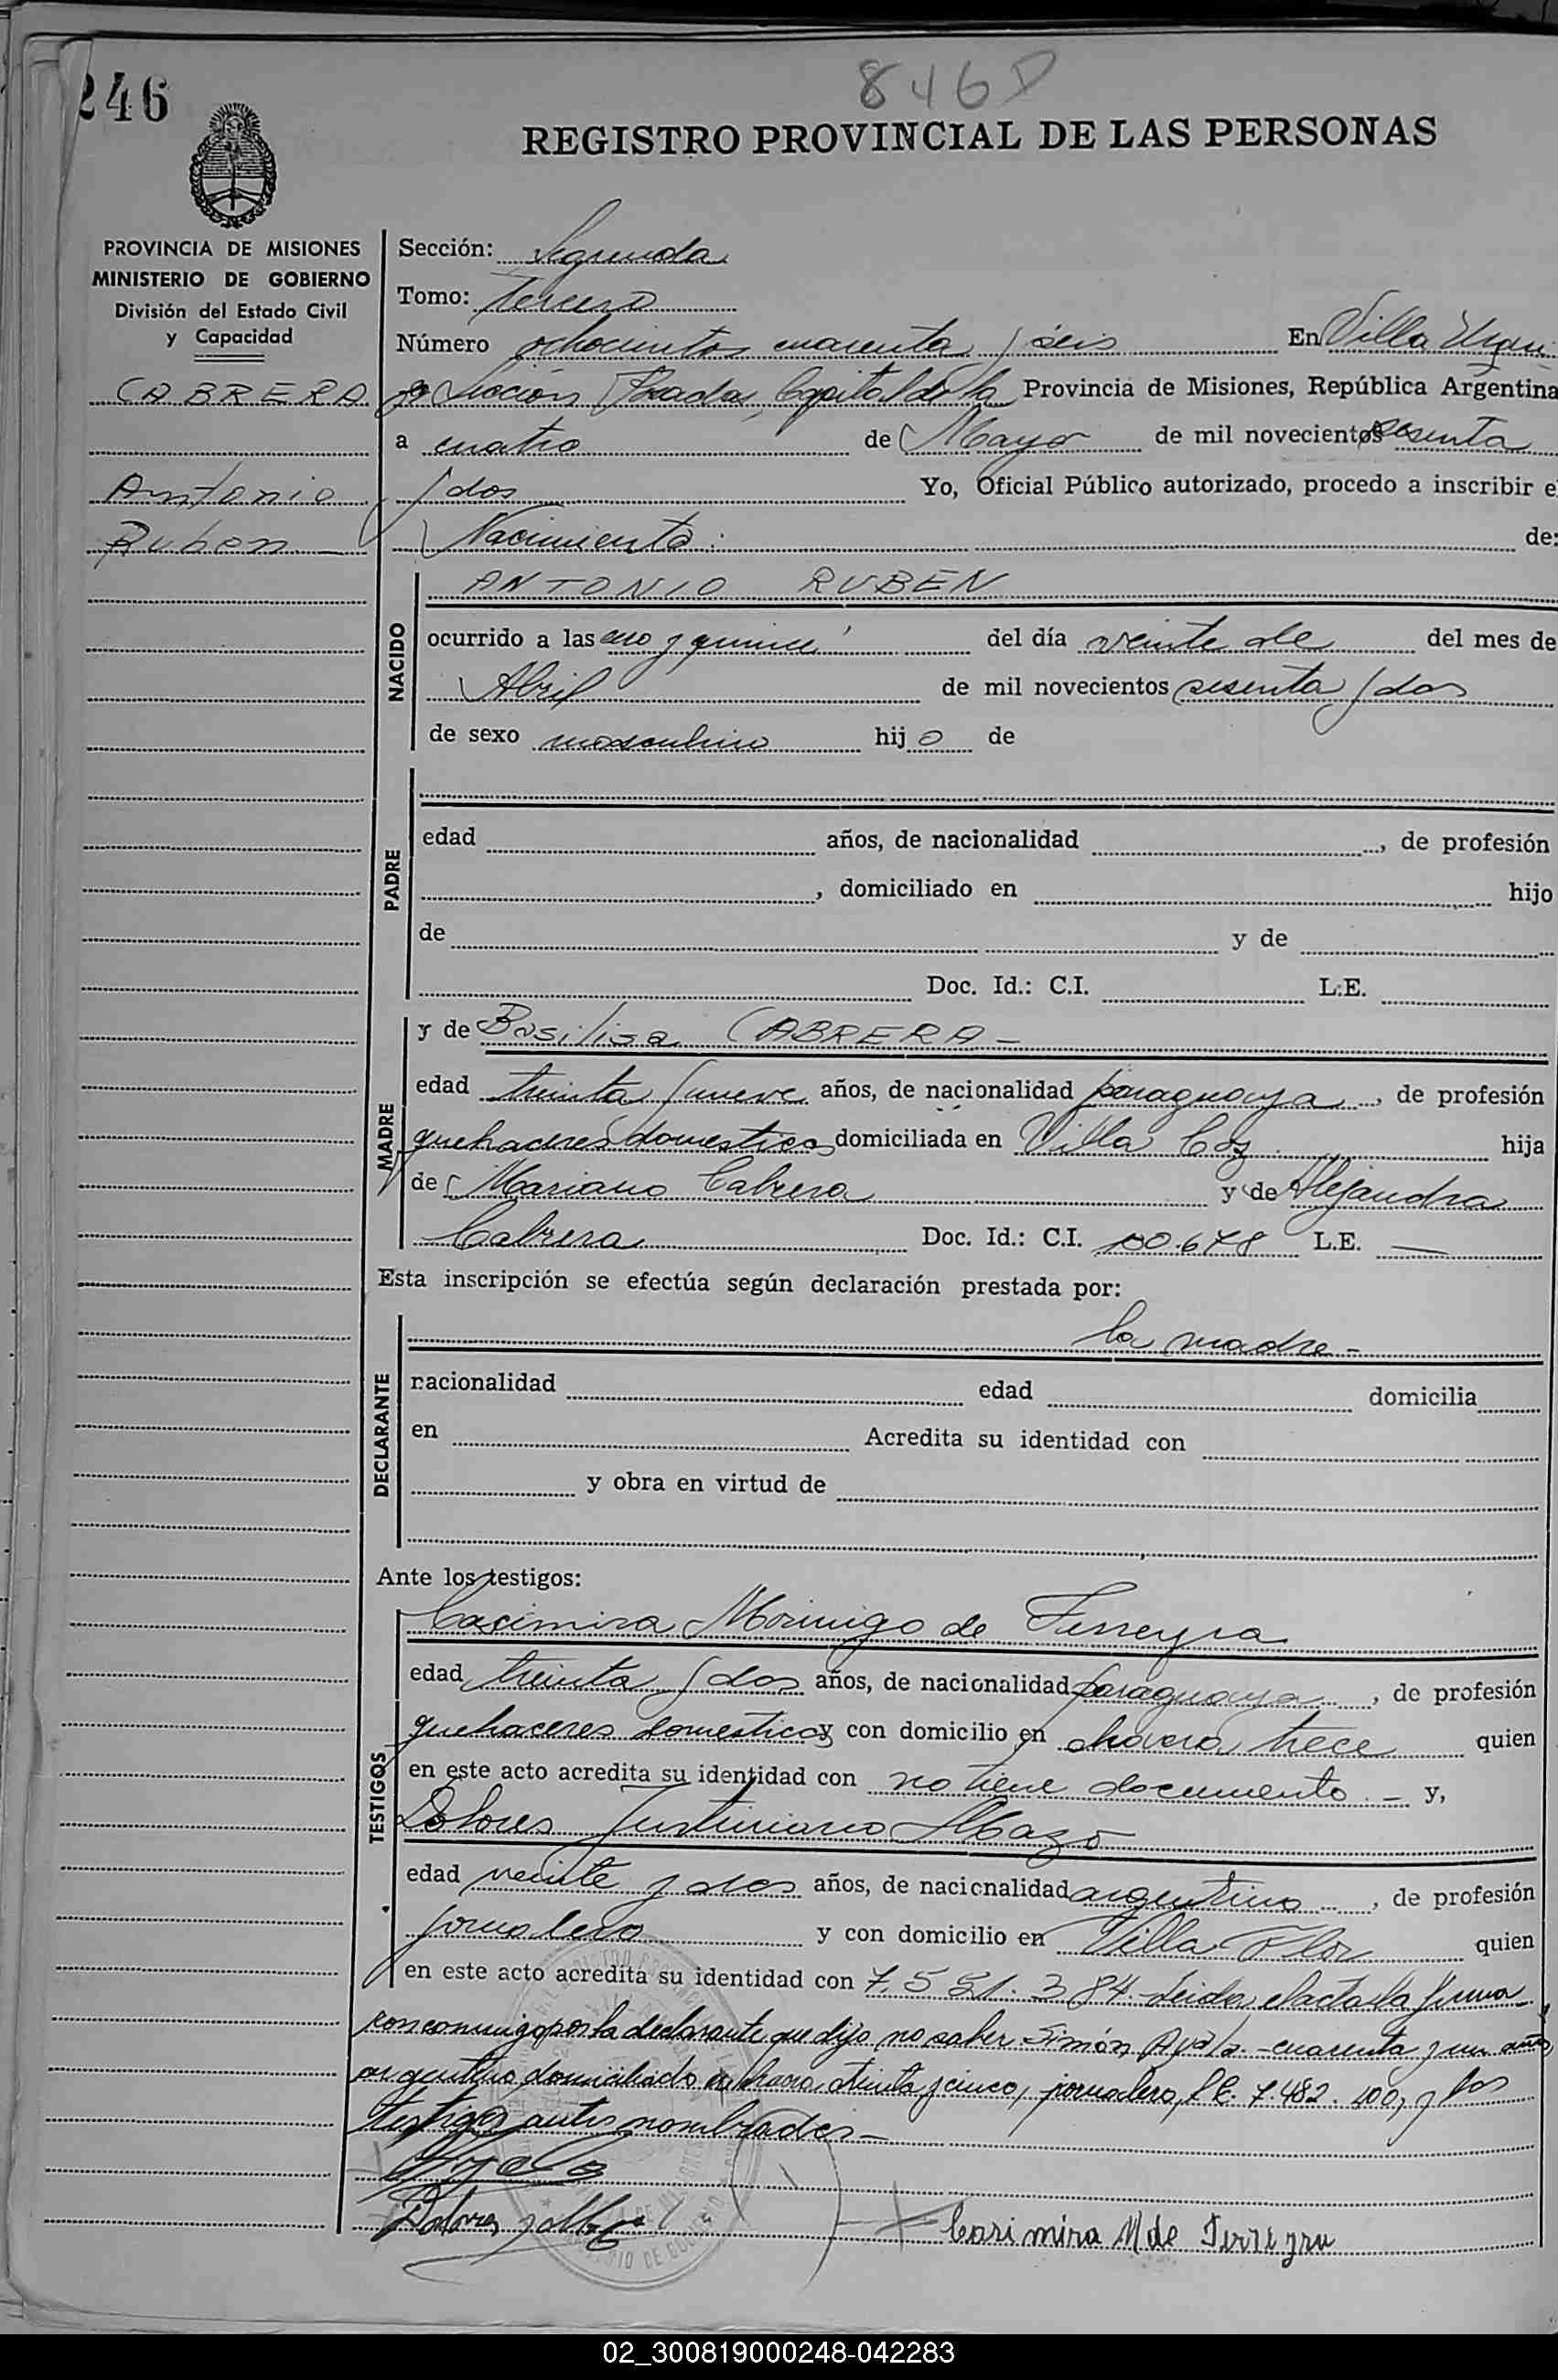 246
846D
REGISTRO PROVINCIAL DE LAS PERSONAS
PROVINCIA DE MISIONES
MINISTERIO DE GOBIERNO
División del Estado Civil
y Capacidad
CABRERA
Antonio
Ruben
Sección: Segunda
Tomo: tercero
Número ochocientos cuarenta y seis En Villa Urqui
Sección Posadas, Capital de la Provincia de Misiones, República Argentina
a cuatro de Mayo de mil novecientos sesenta
y dos Yo, Oficial Público autorizado, procedo a inscribir e
Nacimiento de:
NACIDO
ANTONIO RUBEN
ocurrido a las uno y quince del día veinte de del mes de
Abril de mil novecientos sesenta y dos
de sexo masculino hijo de
PADRE
edad años, de nacionalidad , de profesión
, domiciliado en hijo
de y de
Doc. Id.: C.I. L.E.
MADRE
y de Basilisa CABRERA -
edad treinta y nueve años, de nacionalidad paraguaya , de profesión
quehaceres domesticos domiciliada en Villa Coz hija
de Mariano Cabrera y de Alejandra
Cabrera Doc. Id.: C.I. 100.678 L.E. —
Esta inscripción se efectúa según declaración prestada por:
DECLARANTE
la madre -
nacionalidad edad domicilia
en Acredita su identidad con
y obra en virtud de
Ante los testigos:
TESTIGOS
Casimira Morinigo de Ferreyra
edad treinta y dos años, de nacionalidad paraguaya , de profesión
quehaceres domesticos y con domicilio en chacra trece quien
en este acto acredita su identidad con no tiene documento. - y,
Dolores Justiniano Mazó
edad veinte y dos años, de nacionalidad argentino , de profesión
jornalero y con domicilio en Villa Flor quien
en este acto acredita su identidad con 7.551.384.- Leida el acta la firma
con conmigo por la declarante que dijo no saber Simón Ayala.- cuarenta y un años,
argentino domiciliado en chacra treinta y cinco, jornalero, L.E. 7.482.400, y los
testigos antes nombrados.-
Ayala
Dolores J Mazo
Casimira M de Ferreyra
02_300819000248-042283